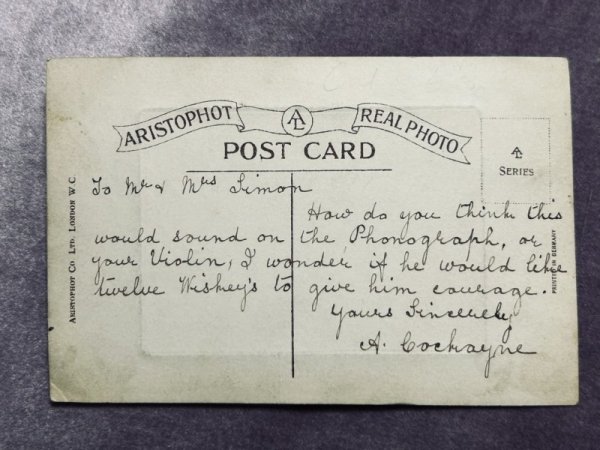 ARISTOPHOT AL REAL PHOTO
POST CARD
AL
SERIES
ARISTOPHOT CO. LTD. LONDON W C
PRINTED IN GERMANY
To Mr & Mrs Simon
How do you think this
would sound on the Phonograph, or
your Violin, I wonder if he would like
twelve Wiskey's to give him courage.
Yours Sincerely
A. Cockayne